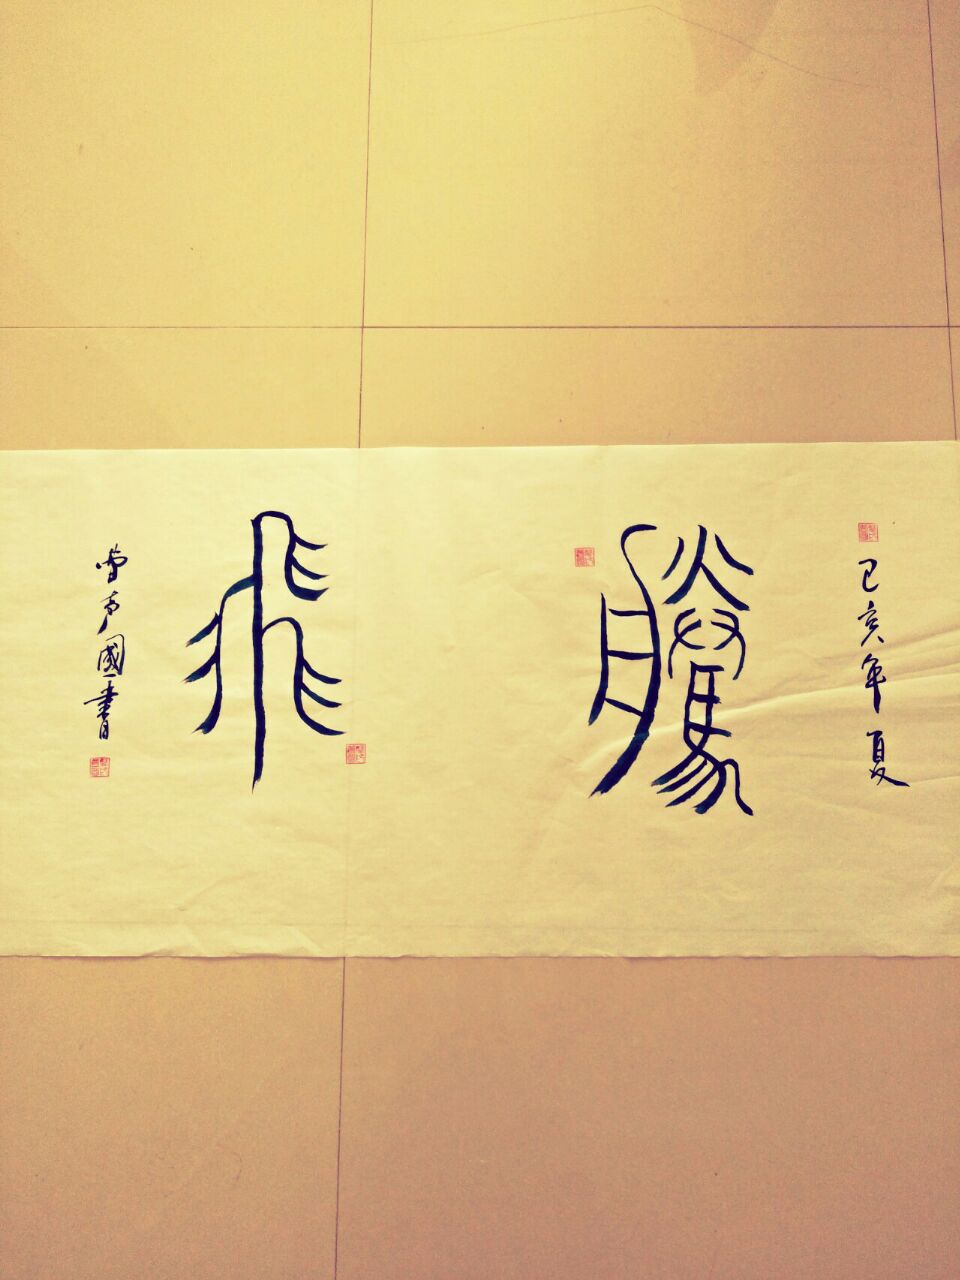 己亥年夏
騰
飛
國書